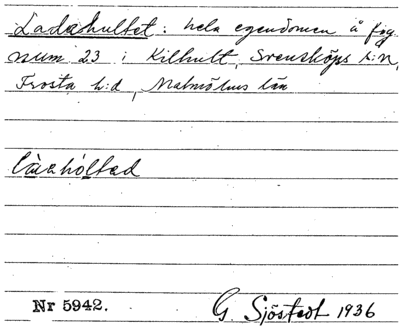 Ladashultet: hela egendomen å fög
num 23 i Kilhult, Svensköps s:n,
Frosta h:d, Malmöhus län
Nr 5942.
G. Sjöstedt 1936